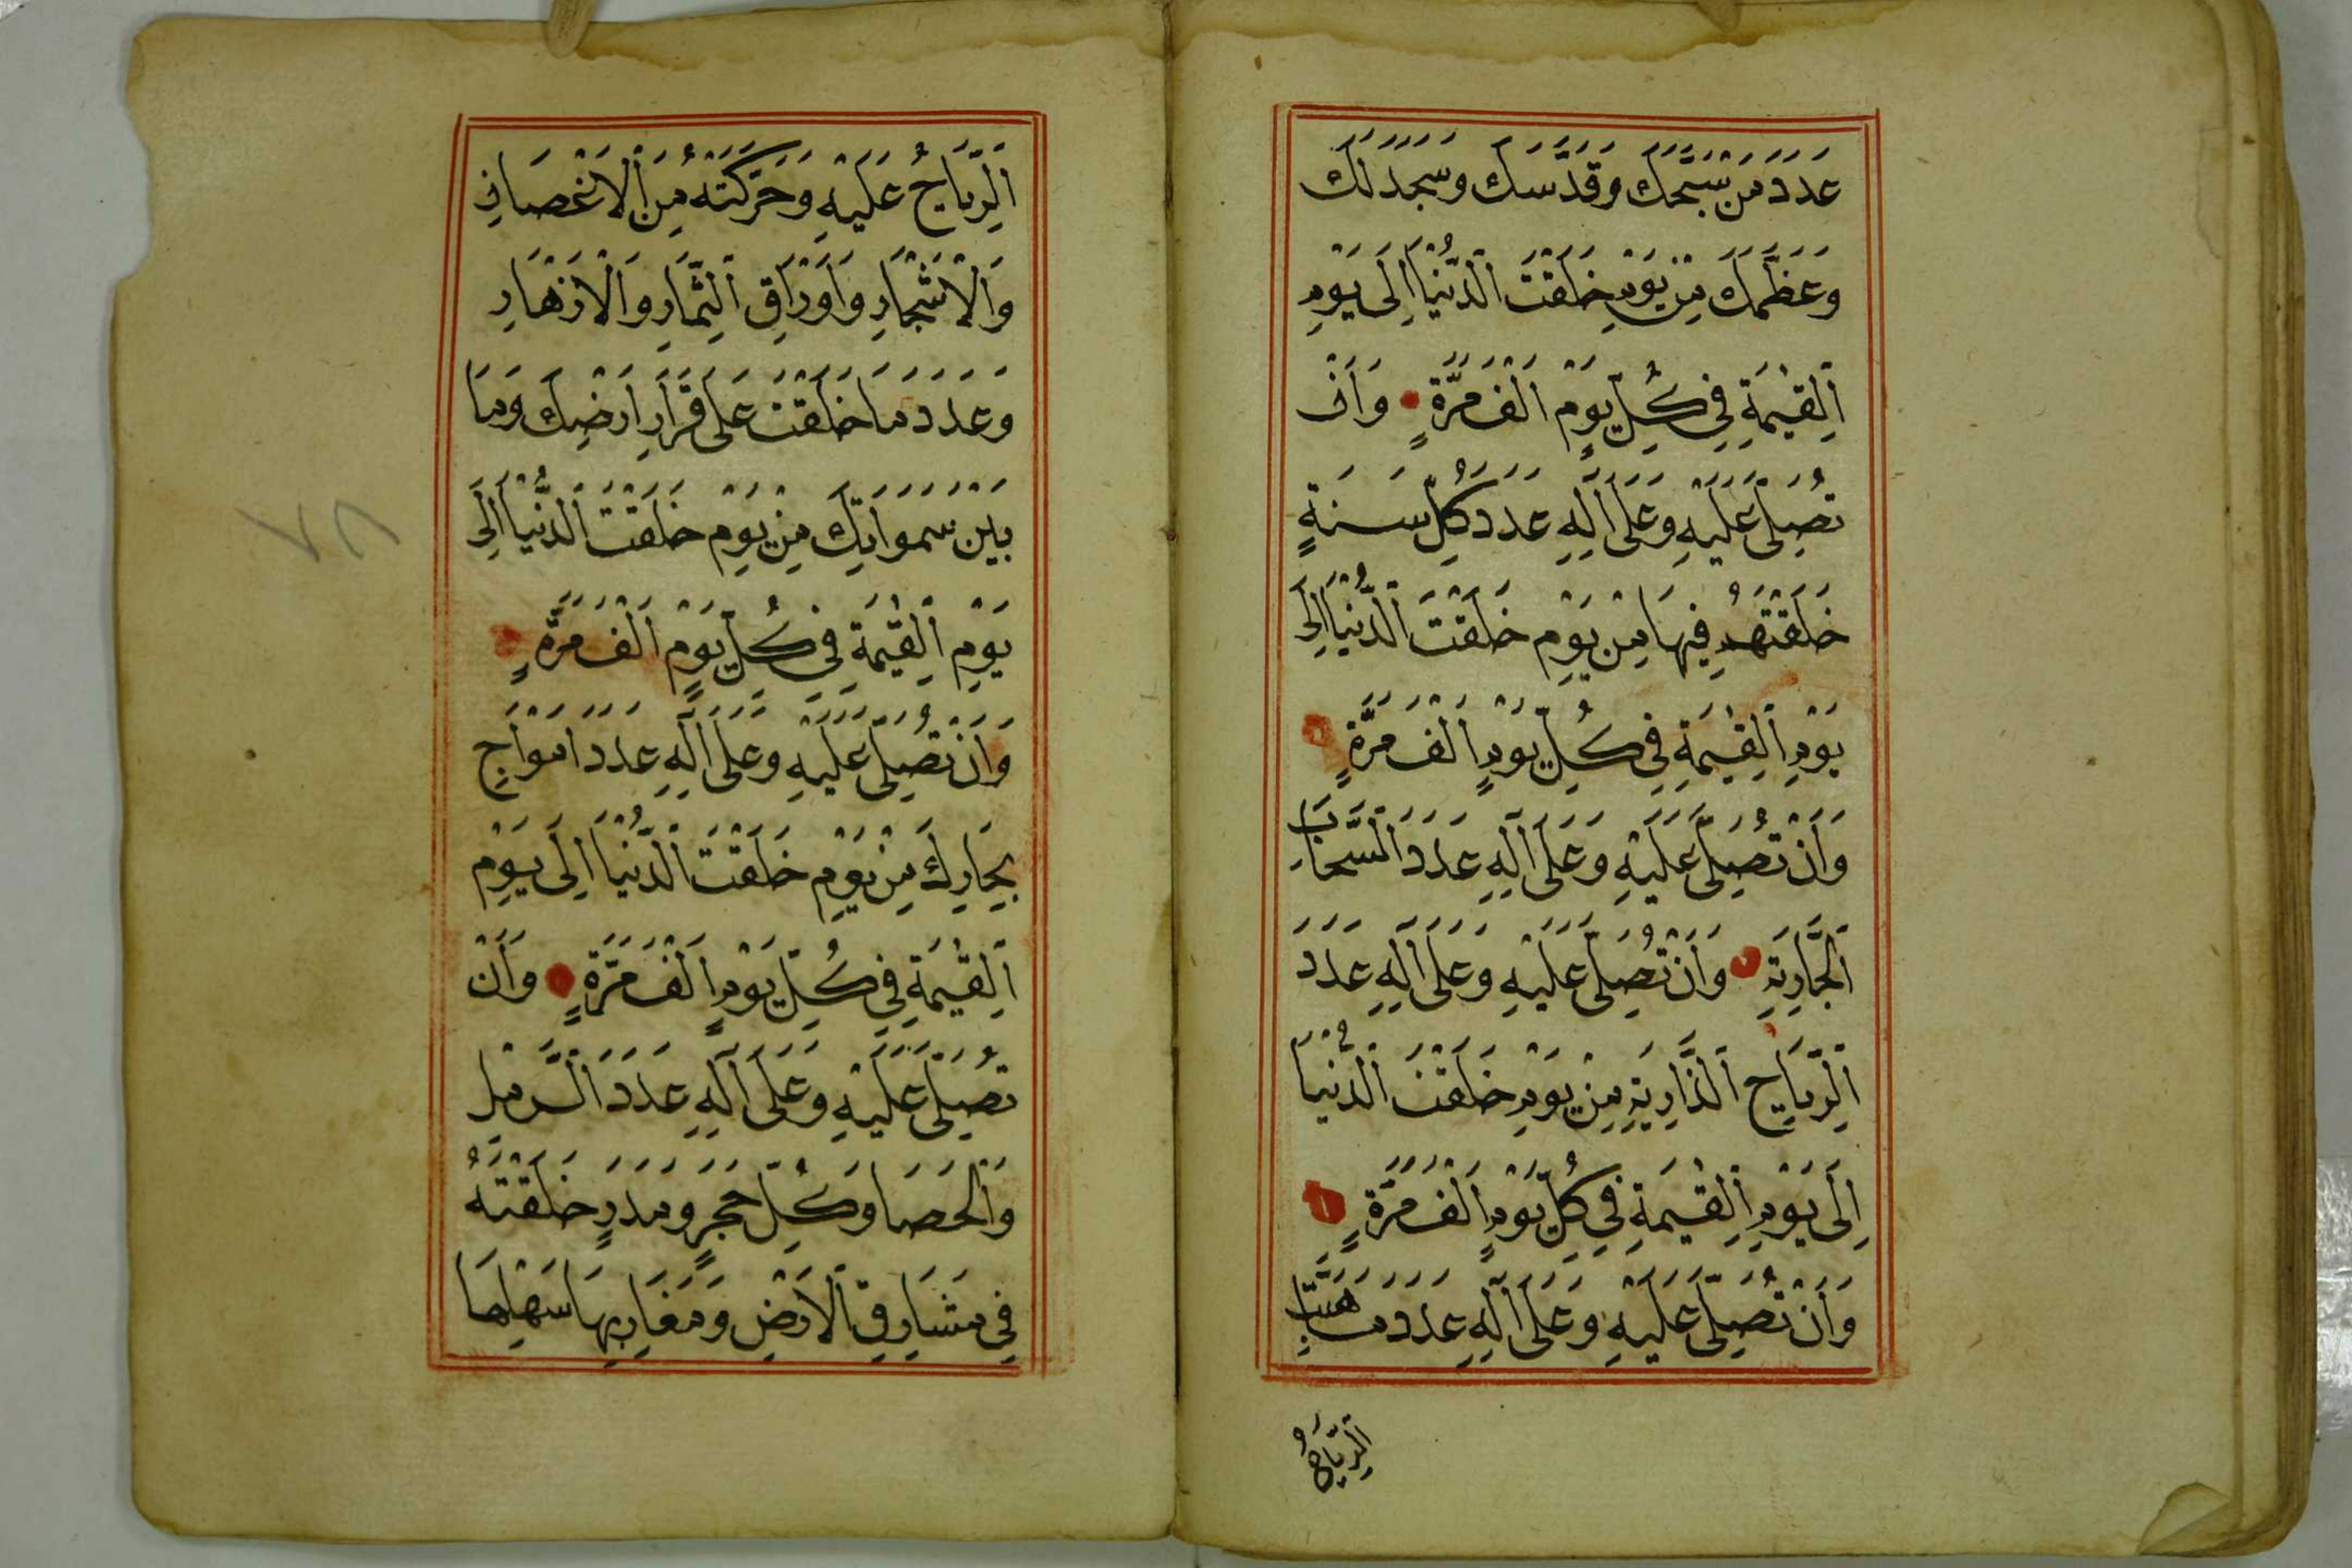 عَدَدَ مَنْ سَبَّحَكَ وَقَدَّسَكَ وَسَجَدَ لَكَ
وَعَظَّمَكَ مِنْ يَوْمِ خَلَقْتَ الدُّنْيَا اِلَى يَوْمِ
الْقِيٰمَةِ فِي كُلِّ يَوْمٍ اَلْفَ مَرَّةٍ وَاَنْ
تُصَلِّيَ عَلَيْهِ وَعَلَى اٰلِهِ عَدَدَ كُلِّ سَنَةٍ
خَلَقْتَهُمْ فِيهَا مِنْ يَوْمِ خَلَقْتَ الدُّنْيَا اِلَى
يَوْمِ الْقِيٰمَةِ فِي كُلِّ يَوْمٍ اَلْفَ مَرَّةٍ
وَاَنْ تُصَلِّيَ عَلَيْهِ وَعَلَى اٰلِهِ عَدَدَ السَّحَابِ
الْجَارِيَةِ وَاَنْ تُصَلِّيَ عَلَيْهِ وَعَلَى اٰلِهِ عَدَدَ
الرِّيَاحِ الذَّارِيَةِ مِنْ يَوْمِ خَلَقْتَ الدُّنْيَا
اِلَى يَوْمِ الْقِيٰمَةِ فِي كُلِّ يَوْمٍ اَلْفَ مَرَّةٍ
وَاَنْ تُصَلِّيَ عَلَيْهِ وَعَلَى اٰلِهِ عَدَدَ مَا هَبَّتِ
الرِّيَاحُ
الرِّيَاحُ عَلَيْهِ وَحَرَّكَتْهُ مِنَ الْاَغْصَانِ
وَالْاَشْجَارِ وَاَوْرَاقِ الثِّمَارِ وَالْاَزْهَارِ
وَعَدَدَ مَا خَلَقْتَ عَلَى قَرَارِ اَرْضِكَ وَمَا
بَيْنَ سَمَوَاتِكَ مِنْ يَوْمِ خَلَقْتَ الدُّنْيَا اِلَى
يَوْمِ الْقِيٰمَةِ فِي كُلِّ يَوْمٍ اَلْفَ مَرَّةٍ
وَاَنْ تُصَلِّيَ عَلَيْهِ وَعَلَى اٰلِهِ عَدَدَ اَمْوَاجِ
بِحَارِكَ مِنْ يَوْمِ خَلَقْتَ الدُّنْيَا اِلَى يَوْمِ
الْقِيٰمَةِ فِي كُلِّ يَوْمٍ اَلْفَ مَرَّةٍ وَاَنْ
تُصَلِّيَ عَلَيْهِ وَعَلَى اٰلِهِ عَدَدَ الرَّمْلِ
وَالْحَصَا وَكُلِّ حَجَرٍ وَمَدَرٍ خَلَقْتَهُ
فِي مَشَارِقِ الْاَرْضِ وَمَغَارِبِهَا سَهْلِهَا